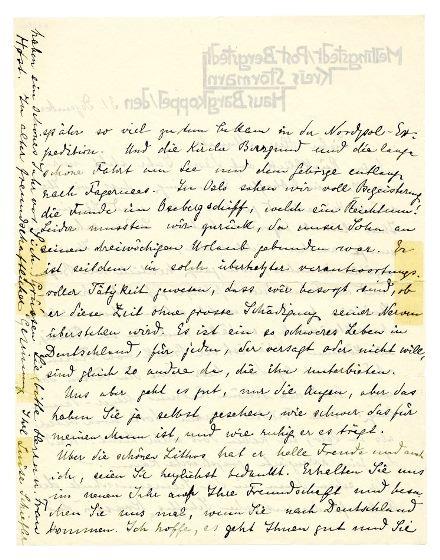 Mellingstedt/Post Bergstedt
Kreis Stormarn
Haus Bargkoppel/den 31. Dezember
später so viel zu tun bekam in der Nordpol-Ex-
pedition. Und die Kirche Borgund und die lange
schöne Fahrt am See und dem Gebirge entlang
nach Fagernes. In Oslo sahen wir voll Begeisterung
die Funde im Osebergschiff, welch ein Reichtum!
Leider mussten wir zurück, da unser Sohn an
seinen dreiwöchigen Urlaub gebunden war. Er
ist seitdem in solch überhetzter verantwortungs-
voller Tätigkeit gewesen, dass wir besorgt sind, ob
er diese Zeit ohne grosse Schädigung seiner Nerven
überstehen wird. Es ist ein so schweres Leben in
Deutschland, für jeden, der versagt oder nicht will,
sind gleich 20 andere da, die ihn unterbieten.
Uns aber geht es gut, nur die Augen, aber das
haben Sie ja selbst gesehen, wie schwer das für
meinen Mann ist, und wie ruhig er es trägt.
Über die schönen Lithos hat er helle Freude und auch
ich, seien Sie herzlichst bedankt. Erhalten Sie uns
im neuen Jahr auch Ihre Freundschaft und besu-
chen Sie uns mal, wenn Sie nach Deutschland
kommen. Ich hoffe, es geht Ihnen gut und Sie
haben ein schönes Jahr vor sich. Grüssen Sie bitte Herrn u. Frau
Høst. In alter freundschaftlicher Gesinnung Ihre Luise Schiefler